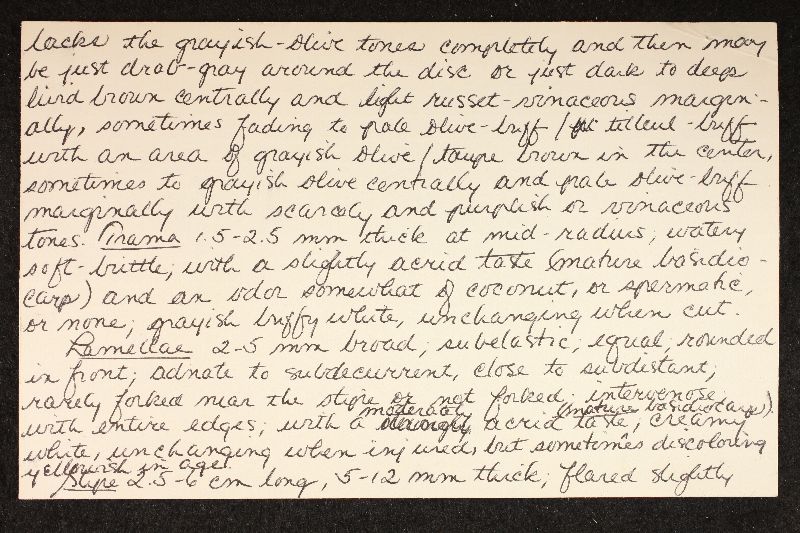 lacks the grayish-olive tones completely and then may
be just drab-gray around the disc or just dark to deep
livid brown centrally and light russet-vinaceous margin-
ally, sometimes fading to pale olive-buff / tilleul-buff
with an area of grayish olive / taupe brown in the center,
sometimes to grayish olive centrally and pale olive-buff
marginally with scarcely and purplish or vinaceous
tones. Trama 1.5-2.5 mm thick at mid-radius; watery
soft-brittle; with a slightly acrid taste (mature basidio-
carp) and an odor somewhat of coconut, or spermatic,
or none; grayish buffy white, unchanging when cut.
Lamellae 2-5 mm broad; subelastic; equal; rounded
in front; adnate to subdecurrent, close to subdistant;
rarely forked near the stipe or not forked; intervenose
with entire edges; with a moderately acrid taste (mature basidiocarp); creamy
white, unchanging when injured, but sometimes discoloring
yellowish in age.
Stipe 2.5-6 cm long, 5-12 mm thick; flared slightly